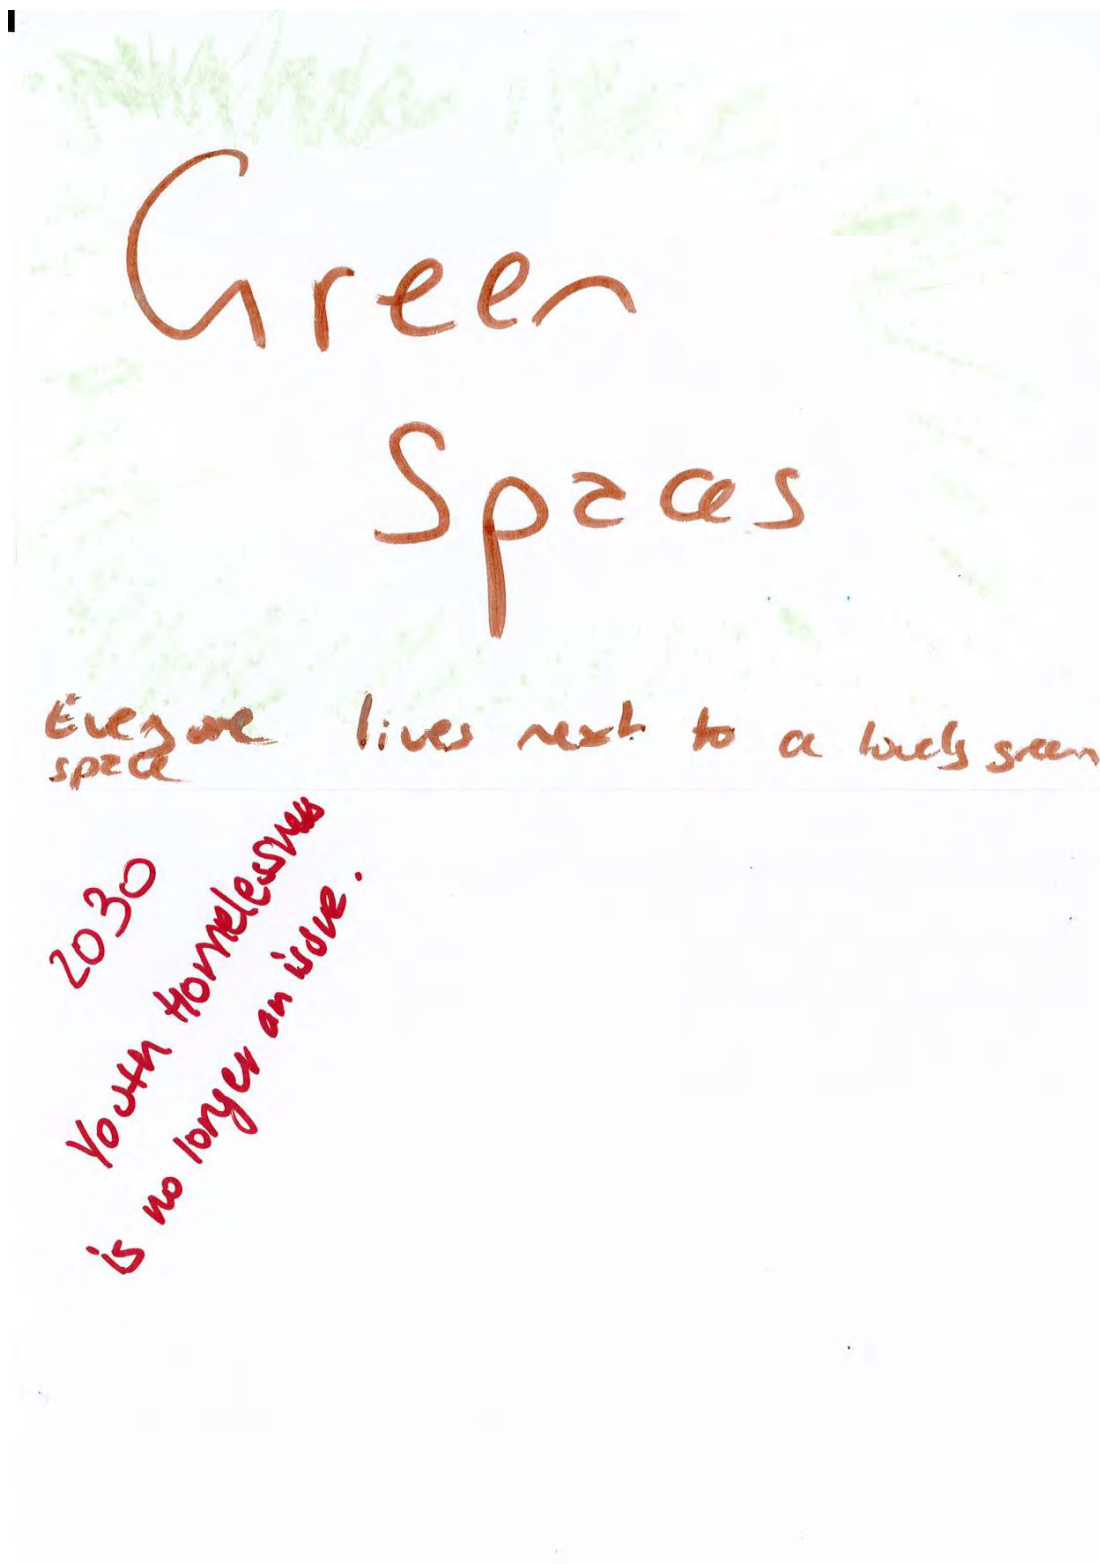 Green
Spaces
Everyone lives next to a lovely green
space
2030
Youth Homelessness
is no longer an issue.